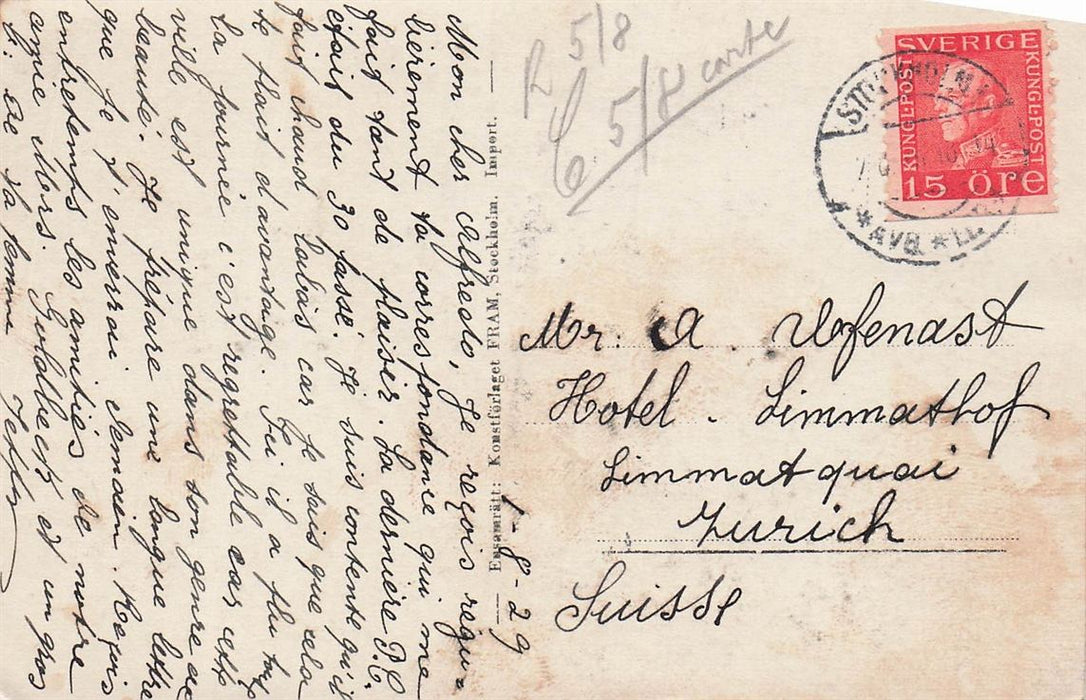 1-8-29
Mon cher Alfredo, Je reçois regu-
lièrement ta correspondane qui me
fait tant de plaisir. La dernière P.C.
était du 30 passé. Je suis contente qu'il
fait chaud labàs car Je sais que cela
te plait d'avantage. Ici il a plu tte
la journée c'est regrettable car cette
ville est unique dans son genre de
beauté. Je prépare une longue lettre
que Je t'enverrai demain. Reçois
entretemps les amitiés de notre
amie Mors. Guldbeck et un gros
b. De ta femme
Ensamrätt: Konstförlaget FRAM, Stockholm. Import.
R 5/8
5/8 carte
SVERIGE
KUNGL. POST
KUNGL. POST
15 ÖRE
STOCKHOLM 1
*AVG*
Mr. A. Ufenast
Hotel. Limmathof
Limmatquai
Zurich
Suisse